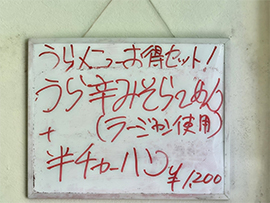 うらメニューお得セット!
うら辛みそらーめん
(ラージャン使用)
+
半チャーハン
¥1,200